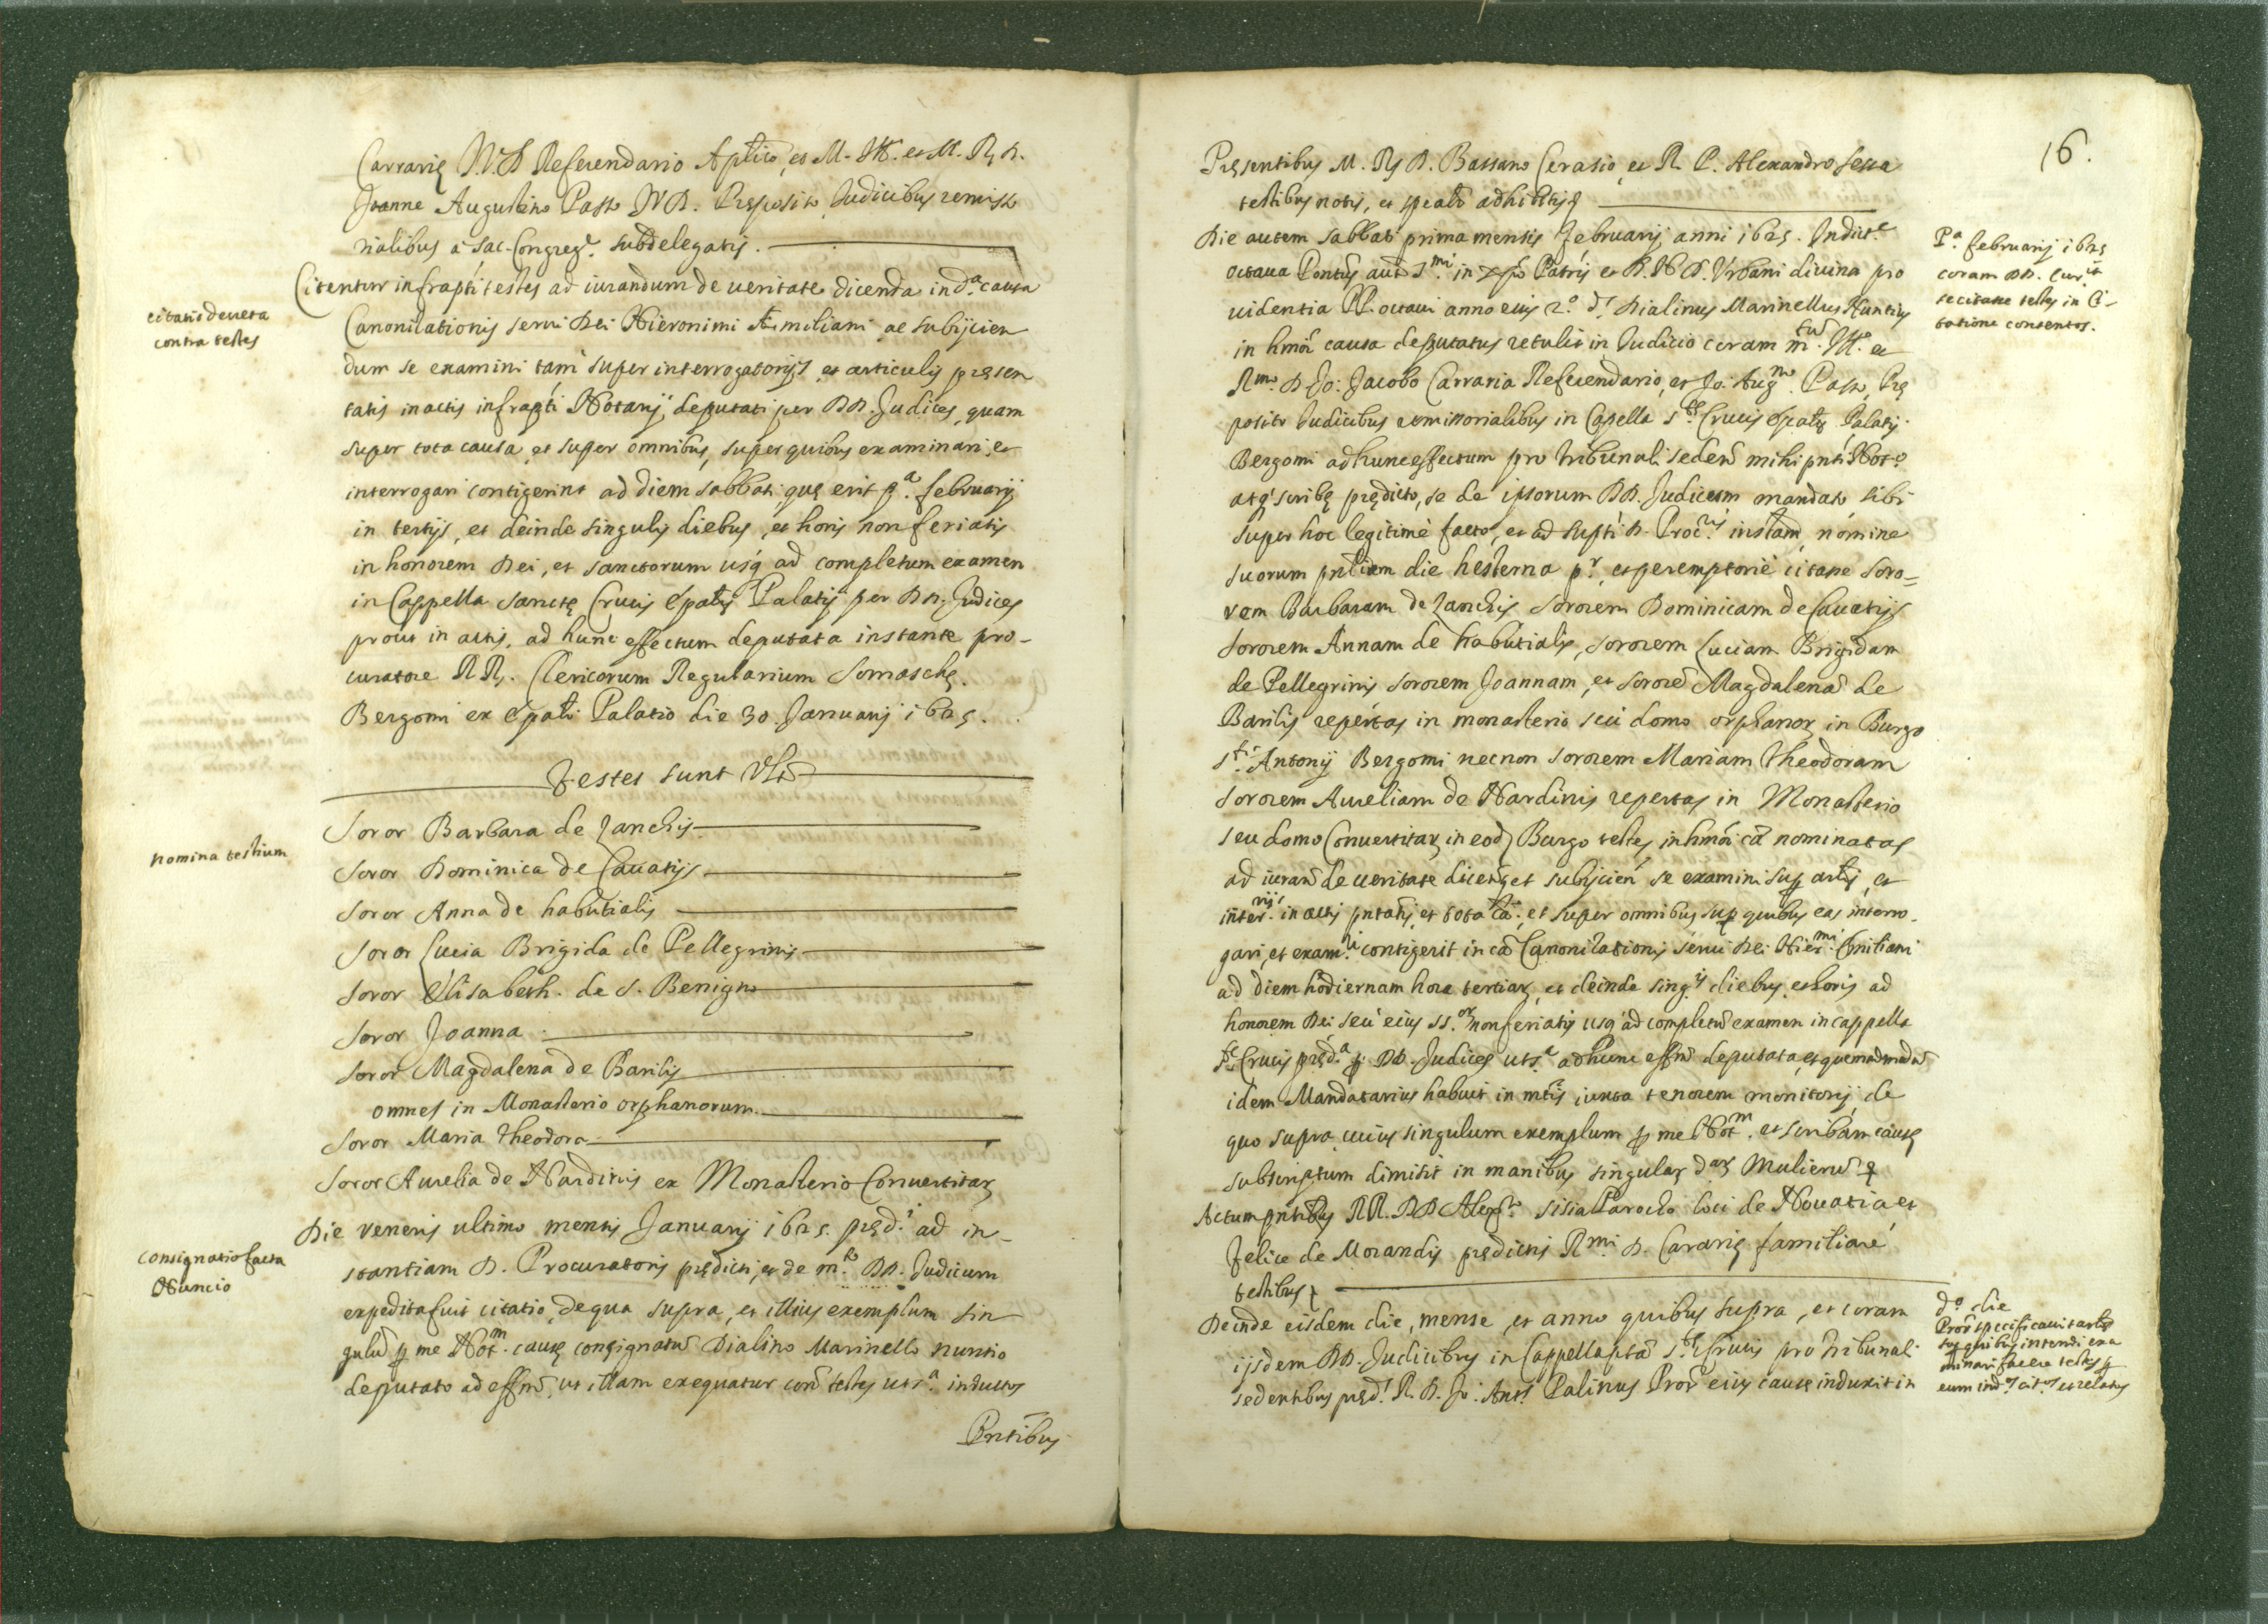 Carrarię I.V.D. Referendario Aplico, et M. Ill. et M. R. D.
Joanne Augustino Pasto I.V.D. Pręposito Judicibus remisso
rialibus a Sac. Congreg.e subdelegatis.
Citentur infrapti testes ad iurandum de ueritate dicenda in d.a causa
citatio decreta
contra testes
Canonizationis serui Dei Hieronimi Æmiliani ac subijcien
dum se examini tam super interrogatorijs et articulis pręsen
tatis in actis infrapti Notarij deputati per DD. Judices, quam
super tota causa et super omnibus, super quibus examinari, et
interrogari contigerint ad diem sabbati quę erit p.a februarij
in tertijs, et deinde singulis diebus, et horis non feriatis
in honorem Dei, et sanctorum usq. ad completum examen
in Cappella sanctę Crucis Epalis Palatij per DD. Judices
prout in actis, ad hunc effectum deputata instante pro-
curatore RR. Clericorum Regularium Somaschę.
Bergomi ex Epali Palatio die 30 Januarij 1625.
Testes sunt Vlt
Soror Barbara de Zanchis
nomina testium
Soror Dominica de Cauatijs
Soror Anna de habutialis
Soror Lucia Brigida de Pellegrinis
Soror Elisabeth. de S. Benigno
Soror Joanna
Soror Magdalena de Barilis
omnes in Monasterio orphanorum
Soror Maria Theodora
Soror Aurelia de Nardinis ex Monasterio Conuertitar
Die veneris ultimo mensis Januarij 1625. pręd.i ad in-
consignatio facta
Nuncio
stantiam D. Procuratoris prędicti, et de m.to DD. Judicum
expedita fuit citatio, de qua supra, et illius exemplum sin
gulū p me Not.m causę consignatū Dialino Marinello nuntio
deputato ad effm, ut illam exequatur con testes ut s.a inductos
Pntibus
16.
Pręsentibus M. R. D. Bassano Cerasio, et R. P. Alexandro Sexa
testibus notis, et specalr adhibitis
Die autem sabbati prima mensis Februarij anni 1625. Indict.e
P.a februarij 1625
coram DD.
citasse testes in Ci-
tatione contentos.
octaua Pontus aut S.mi in xpo Patris et D. N. D. Vrbani diuina pro
uidentia PP. octaui anno eius 2.o d. Dialinus Marinellus Nuntius
in hmoi causa deputatus retulit in Judicio coram m.tum Ill. et
R.mo D. Jo: Jacobo Carraria Referendario, et Jo: Aug.no Pasto, Prę
posito Judicibus remissorialibus in Capella S.tę Crucis Epalis Palatij
Bergomi ad hunc effectum pro tribunali seden mihi pnti Not.o
atq. scribę prędicto, se de ipsorum DD. Judicum mandato sibi
super hoc legitimè facto, et ad supti D. Proc.ris instam nomine
suorum pnlium die hesterna p.r, et peremptoriè citasse Soro-
rem Barbaram de Zanchis sororem Dominicam de Cauatijs
sororem Annam de habutialis, sororem Luciam Brigidam
de Pellegrinis sororem Joannam, et sororē Magdalenā de
Barilis repertas in monasterio seù domo orphanor in Burgo
s.ti Antonij Bergomi necnon sororem Mariam Theodoram
sororem Aureliam de Nardinis repertas in Monasterio
seu domo Conuertitar in eod Burgo testes in hmoi cā nominatas
ad iuran de ueritate dicen et subijcien se examini sup artis et
inter.rijs in actis pntatis, et tota cā, et super omnibus sup quibus eas interro-
gari, et exam.ri contigerit in cā Canonizationis serui Dei Hier.mi Emiliani
ad diem hodiernam hora tertiar, et deinde sing.is diebus, et horis ad
honorem Dei seu eius ss.or non feriatis usq. ad completū examen in cappella
S.tę Crucis pręd.a p DD. Judices ut s.a ad hunc effm deputata, et quemadmodū
idem Mandatarius habuit in mtis iuxta tenorem monitorij de
quo supra cuius singulum exemplum p me Not.m et scribam causę
subscriptum dimisit in manibus singular d.ar Mulierū
Actum pntibus RR. DD. Alex.ro Sisia Parocho loci de Nouatia et
Felice de Morandis prędicti R.mi D. Cararię familiare
testibus
Deinde eisdem die, mense, et anno quibus supra, et coram
d.o die
Pror specificauit artos
sup quibus intendi exa
minari facere testes p
eum ind.os cit.os et relatos
ijsdem DD. Judicibus in Cappella pta S.tę Crucis pro tribunali
sedentibus pręd.s R. D. Jo: Ant.s Palinus Pror eius causę induxit in